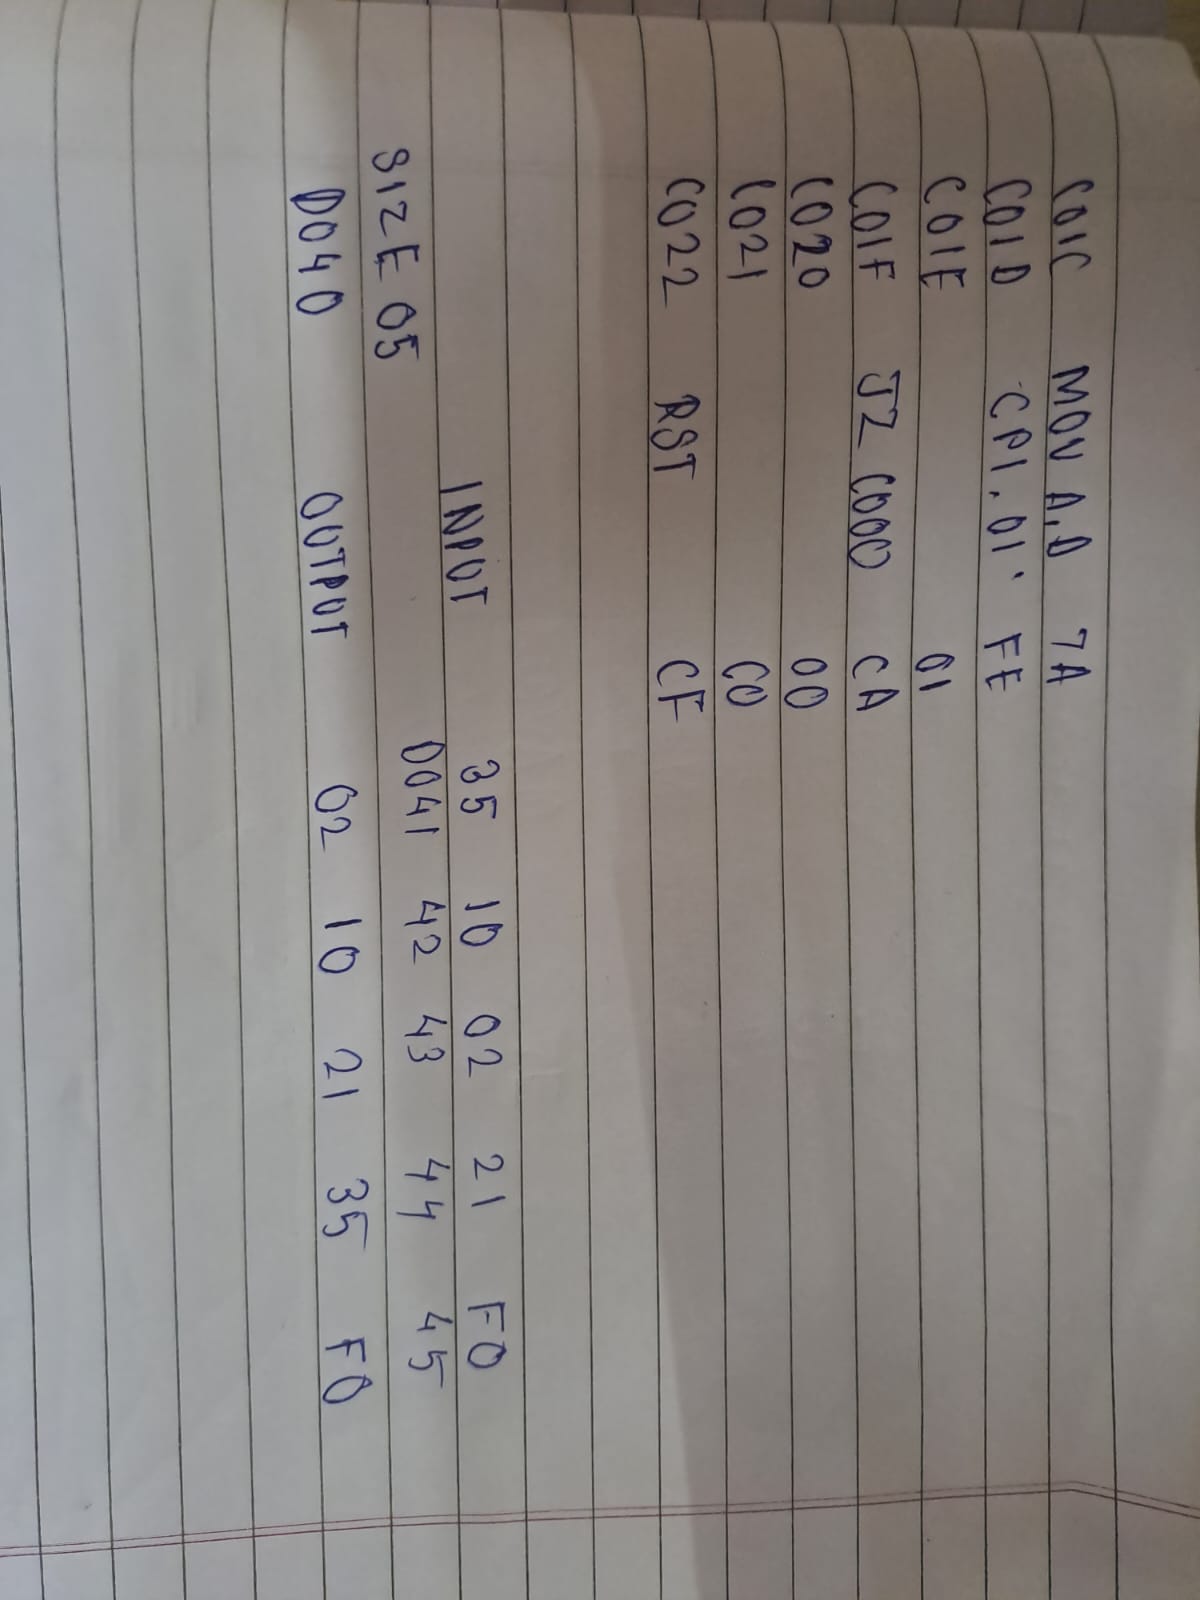 C01C MOV A,D 7A
C01D CPI. 01. FE
C01E 01
C01F JZ C000 CA
C020 00
C021 C0
C022 RST CF
INPUT 35 10 02 21 F0
SIZE 05 D041 42 43 44 45
D040 OUTPUT 02 10 21 35 F0